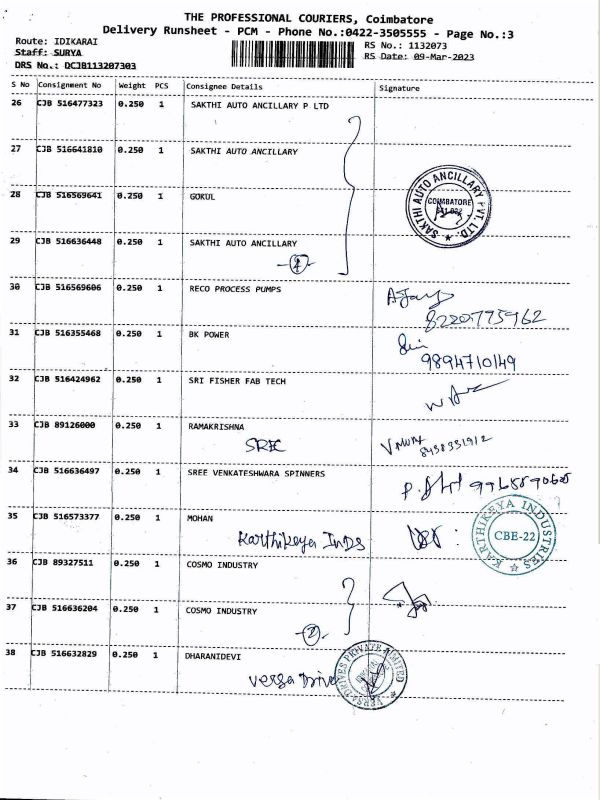 THE PROFESSIONAL COURIERS, Coimbatore
Delivery Runsheet - PCM - Phone No.:0422-3505555 - Page No.:3
Route: IDIKARAI
RS No.: 1132073
Staff: SURYA
RS Date: 09-Mar-2023
DRS No.: DCJB113207303
S No Consignment No Weight PCS Consignee Details Signature
26 CJB 516477323 0.250 1 SAKTHI AUTO ANCILLARY P LTD
27 CJB 516641810 0.250 1 SAKTHI AUTO ANCILLARY
SAKTHI AUTO ANCILLARY PVT. LTD.
COIMBATORE
28 CJB 516569641 0.250 1 GOKUL
29 CJB 516636448 0.250 1 SAKTHI AUTO ANCILLARY
30 CJB 516569606 0.250 1 RECO PROCESS PUMPS
8220775962
31 CJB 516355468 0.250 1 BK POWER
9894710149
32 CJB 516424962 0.250 1 SRI FISHER FAB TECH
33 CJB 89126000 0.250 1 RAMAKRISHNA
SREC
34 CJB 516636497 0.250 1 SREE VENKATESHWARA SPINNERS
35 CJB 516573377 0.250 1 MOHAN
Karthikeya Inds
KARTHIKEYA INDUSTRIES
CBE-22
36 CJB 89327511 0.250 1 COSMO INDUSTRY
37 CJB 516636204 0.250 1 COSMO INDUSTRY
-2-
38 CJB 516632829 0.250 1 DHARANIDEVI
Versa Drive
VERSA DRIVES PRIVATE LIMITED